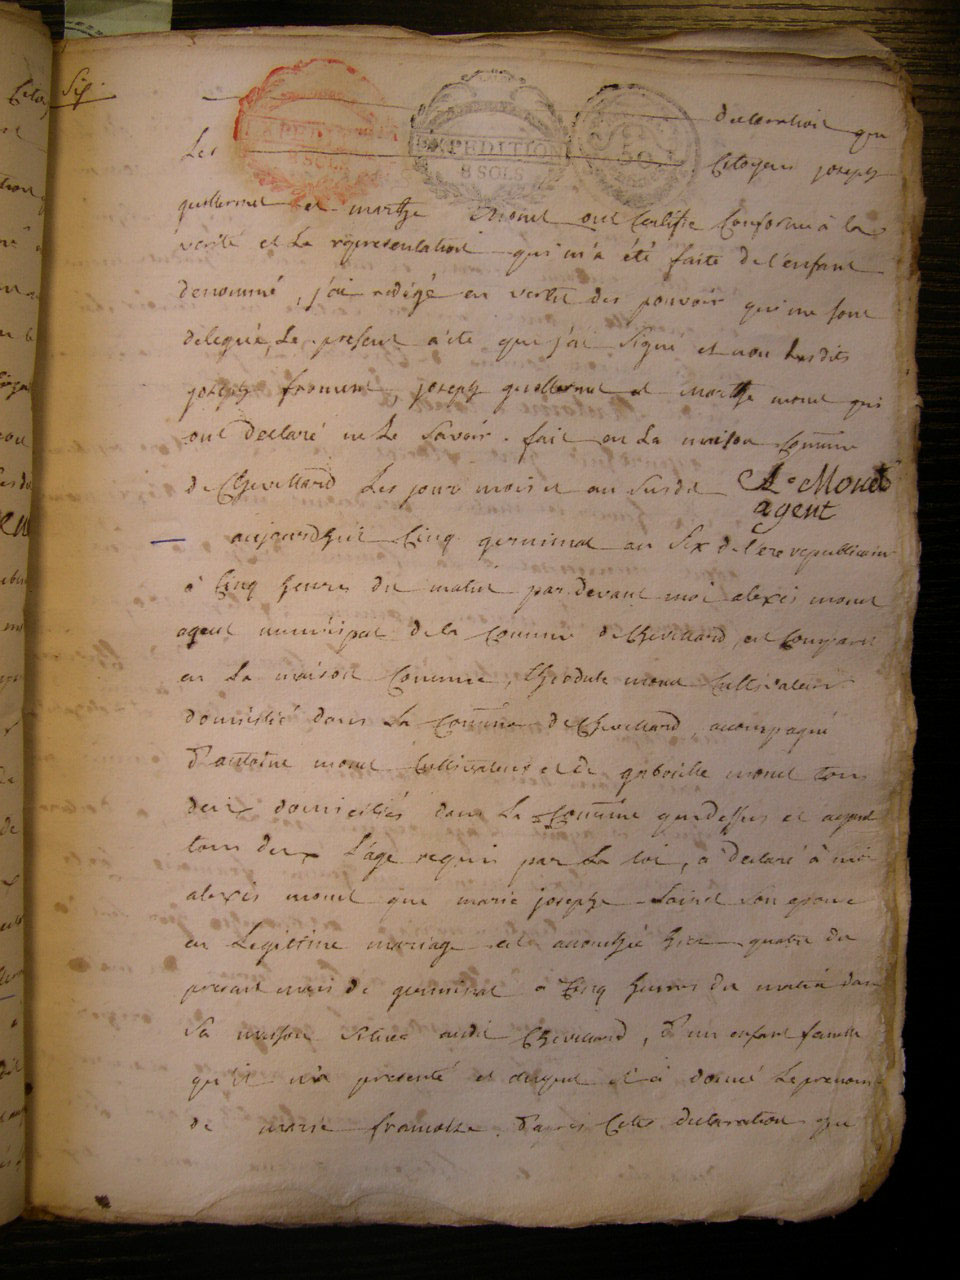 Six
declaration que
Les Citoyens joseph
guillermet et marthe monet ont Certifié Conforme à la
verité et La représentation qui m'a été faite de l'enfant
denommé, j'ai redigé en vertu des pouvoir qui me sont
delegué, Le present acte que j'ai Signé et non Lesdits
joseph froment, joseph guillermet et marthe monet qui
ont declaré ne Le Savoir. fait en La maison Comune
de Chevillard Les jour mois et an Susdit A.e Monet
agent
aujourdhuit Cinq germinal an Six de l'ere republicain
à Cinq heures du matin par devant moi alexis monet
agent municipal de la Comune de Chevillard, est Comparu
en La maison Comune, theodule monet Cultivateur
domicilié dans La Comune de Chevillard, accompagné
d'antoine monet Cultivateur et de gaboille monet tous
deux domiciliés dans La Comune que dessus et ayant
tous deux L'age requis par La loi, a declaré à moi
alexis monet que marie josephe son epouse
en Legitime mariage est accouchée hier quatre du
present mois de germinal a Cinq heures du matin dans
Sa maison Située audit Chevillard, d'un enfant femelle
qu'il m'a presenté et auquel il a donné Le prenom
de marie francoise. d'apres Cette declaration que
EXPEDITION
8 SOLS
EXPEDITION
8 SOLS
50